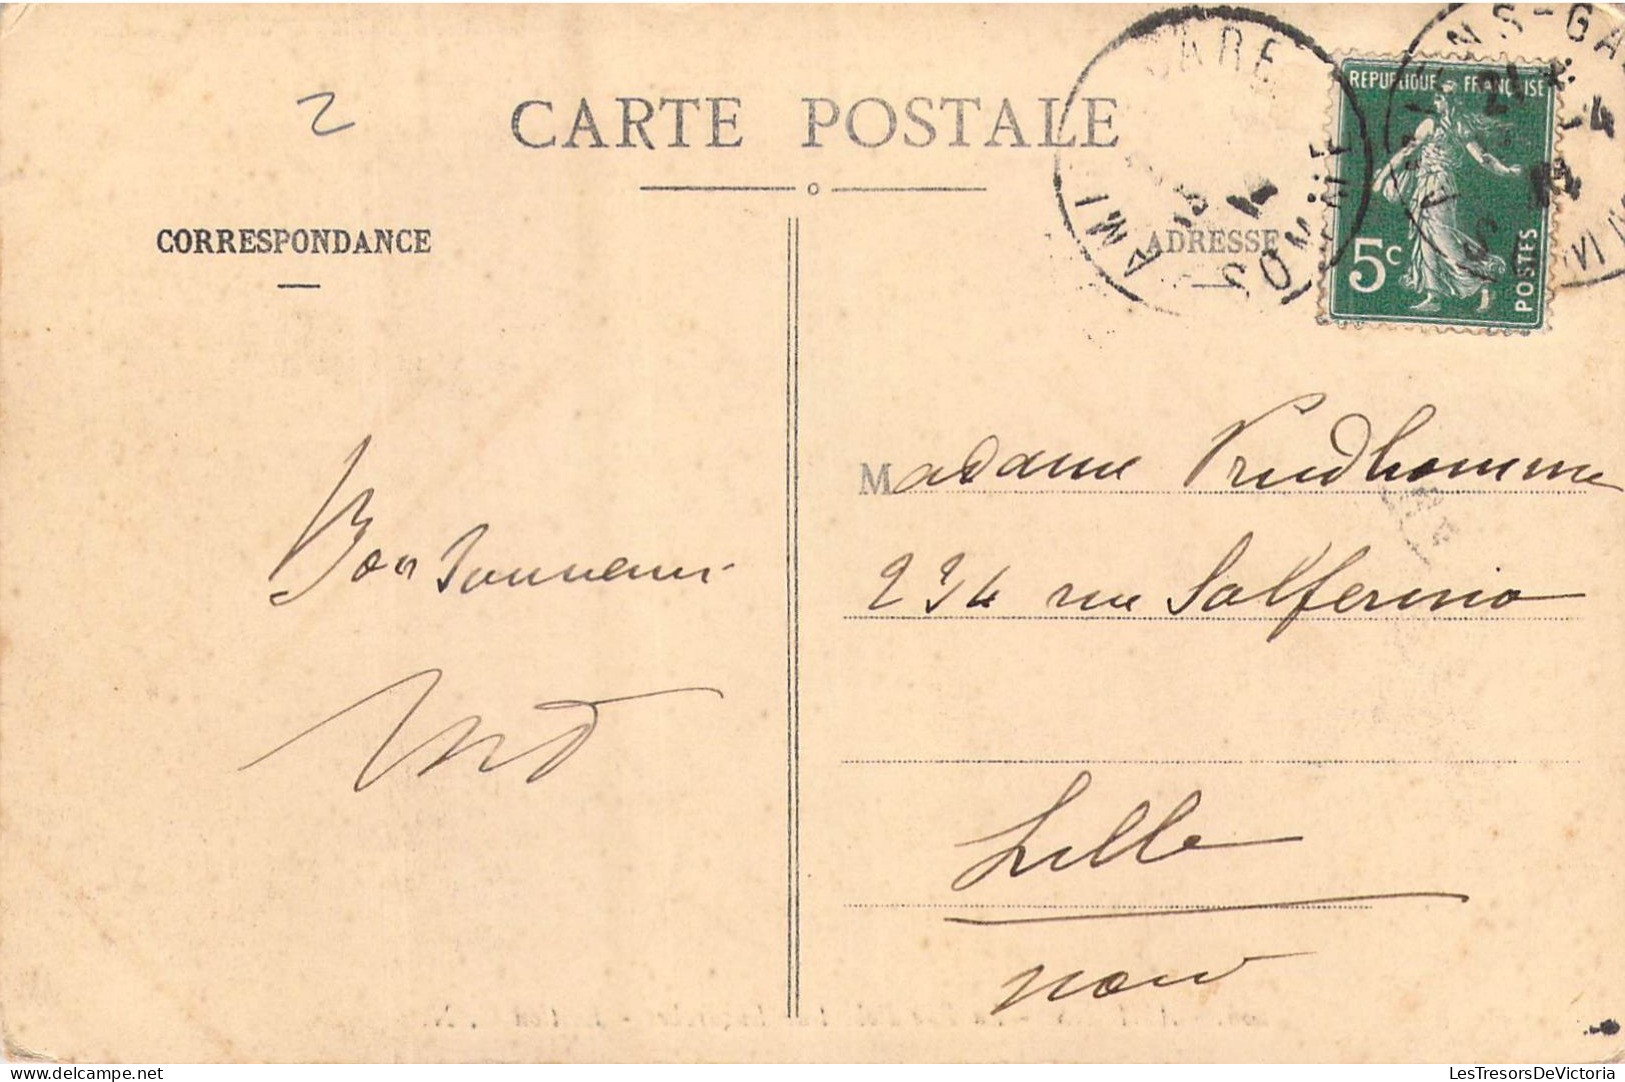 2
CARTE POSTALE
CORRESPONDANCE
ADRESSE
GARE
SOMME
REPUBLIQUE FRANÇAISE
5c
POSTES
Madame Prudhomme
234 rue Solferino
Lille
Nord
Bon Souvenir
LesTresorsDeVictoria
© www.delcampe.net